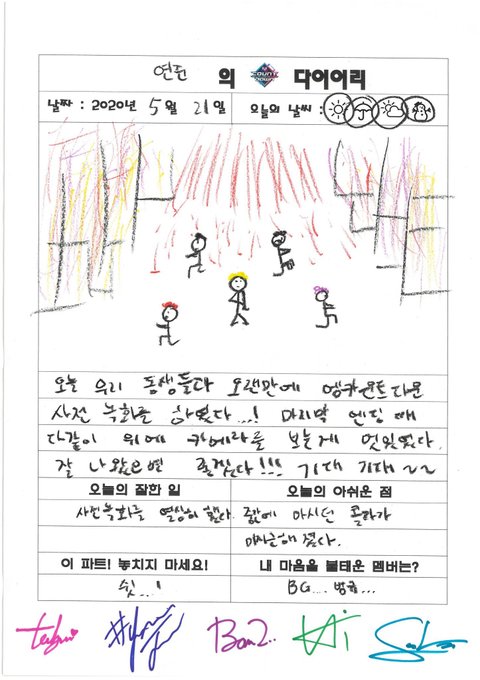 연준 의 M COUNT DOWN 다이어리
날짜 : 2020년 5월 21일 오늘의 날씨 :
오늘 우리 동생들과 오랜만에 엠카운트다운
사전 녹화를 하였다...! 마지막 엔딩 때
다같이 위에 카메라를 보는게 멋있었다.
잘 나왔으면 좋겠다!!! 기대 기대 ~~
오늘의 잘한 일 오늘의 아쉬운 점
사전녹화를 열심히 했다. 중간에 마시던 콜라가
미지근해 졌다.
이 파트! 놓치지 마세요! 내 마음을 불태운 멤버는?
쉿...! BG.... 범규...